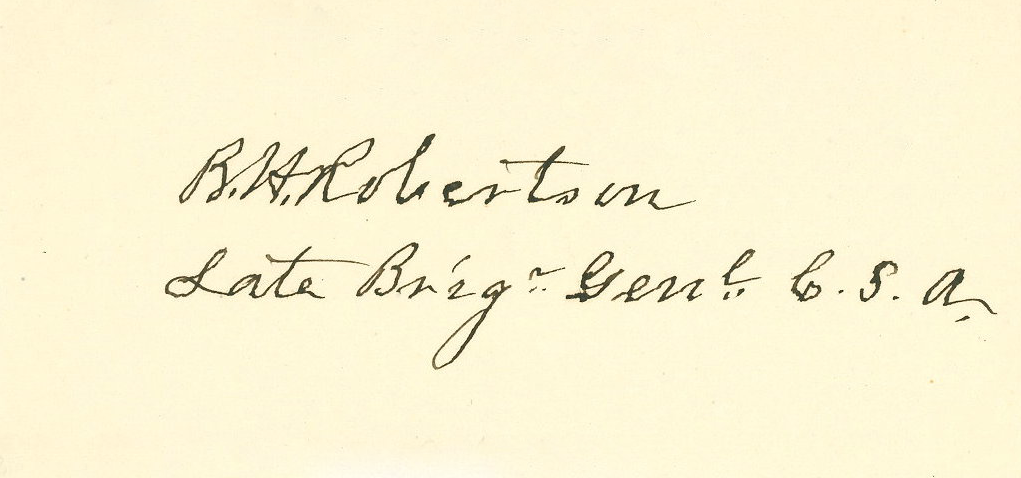 B. H. Robertson
Late Brigr Genl C. S. A.